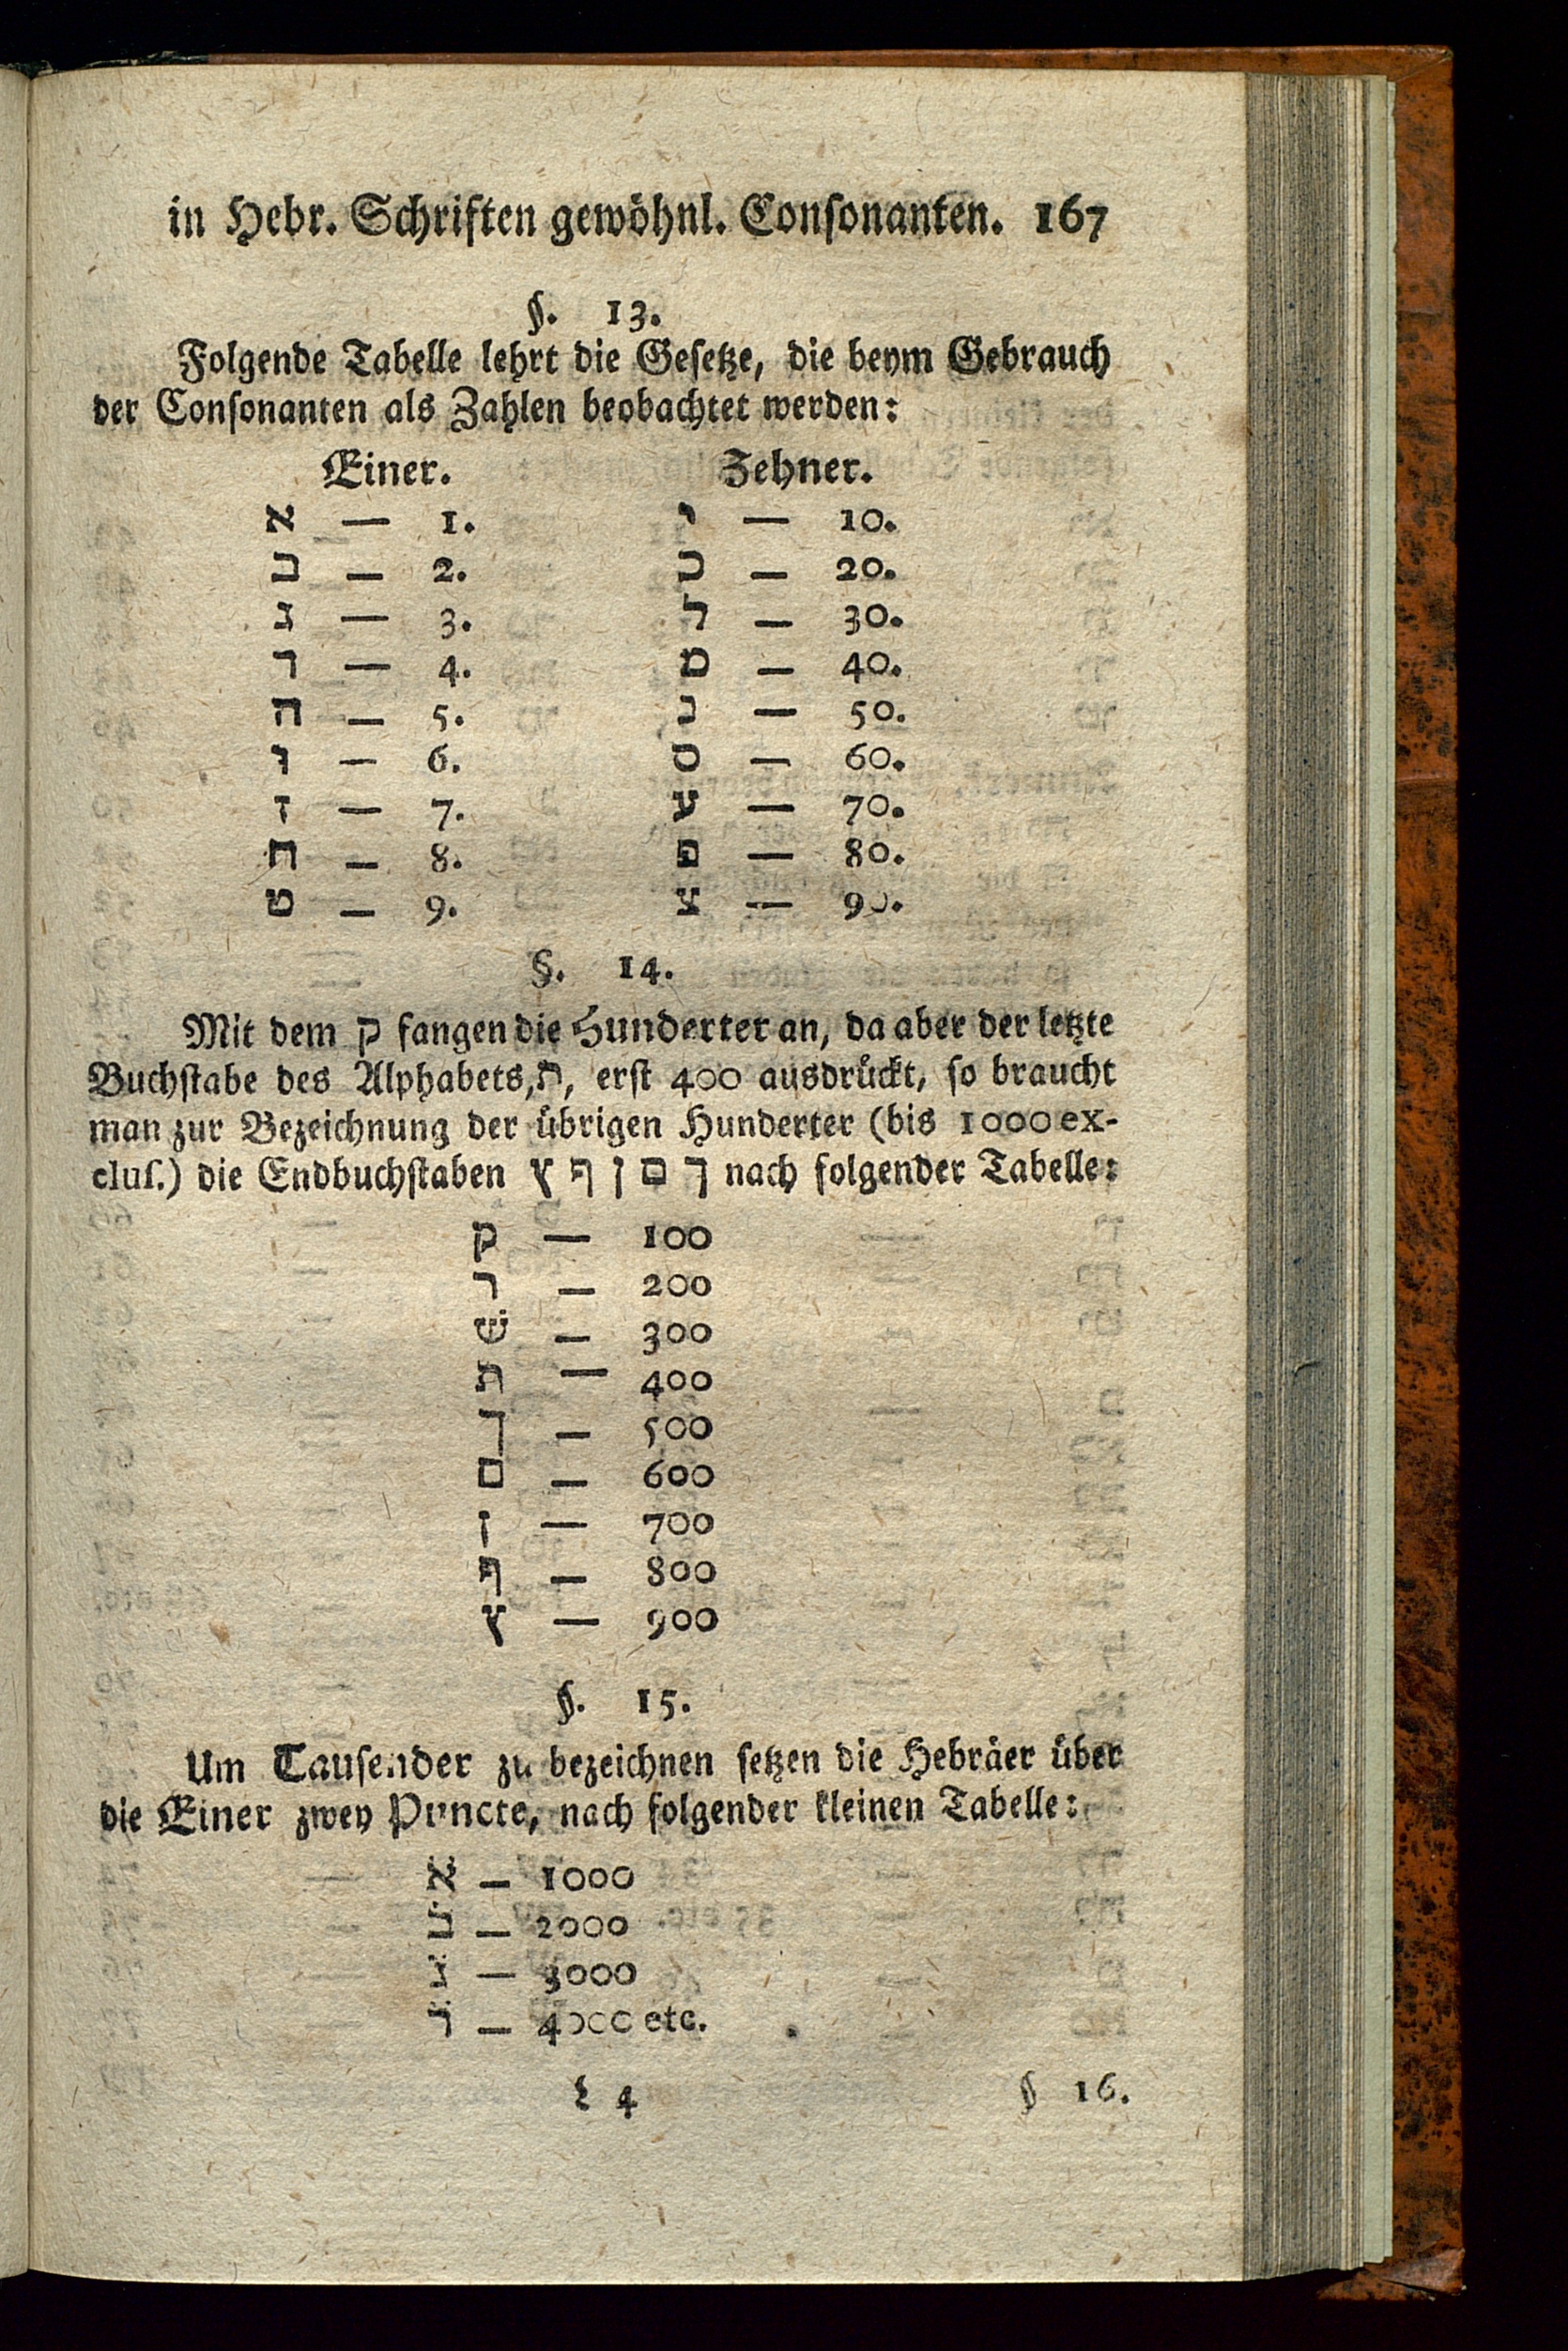 in Hebr. Schriften gewöhnl. Consonanten. 167
§. 13.
Folgende Tabelle lehrt die Gesetze, die beym Gebrauch
der Consonanten als Zahlen beobachtet werden:
Einer. Zehner.
א — 1. י — 10.
ב — 2. כ — 20.
ג — 3. ל — 30.
ד — 4. מ — 40.
ה — 5. נ — 50.
ו — 6. ס — 60.
ז — 7. ע — 70.
ח — 8. פ — 80.
ט — 9. צ — 90.
§. 14.
Mit dem ק fangen die Hunderter an, da aber der letzte
Buchstabe des Alphabets, ת, erst 400 ausdrückt, so braucht
man zur Bezeichnung der übrigen Hunderter (bis 1000 ex-
clus.) die Endbuchstaben ך ם ן ף ץ nach folgender Tabelle:
ק — 100
ר — 200
שׁ — 300
ת — 400
ך — 500
ם — 600
ן — 700
ף — 800
ץ — 900
§. 15.
Um Tausender zu bezeichnen setzen die Hebräer über
die Einer zwey Puncte, nach folgender kleinen Tabelle:
א̈ — 1000
ב̈ — 2000
ג̈ — 3000
ד̈ — 4000 etc.
L 4 § 16.